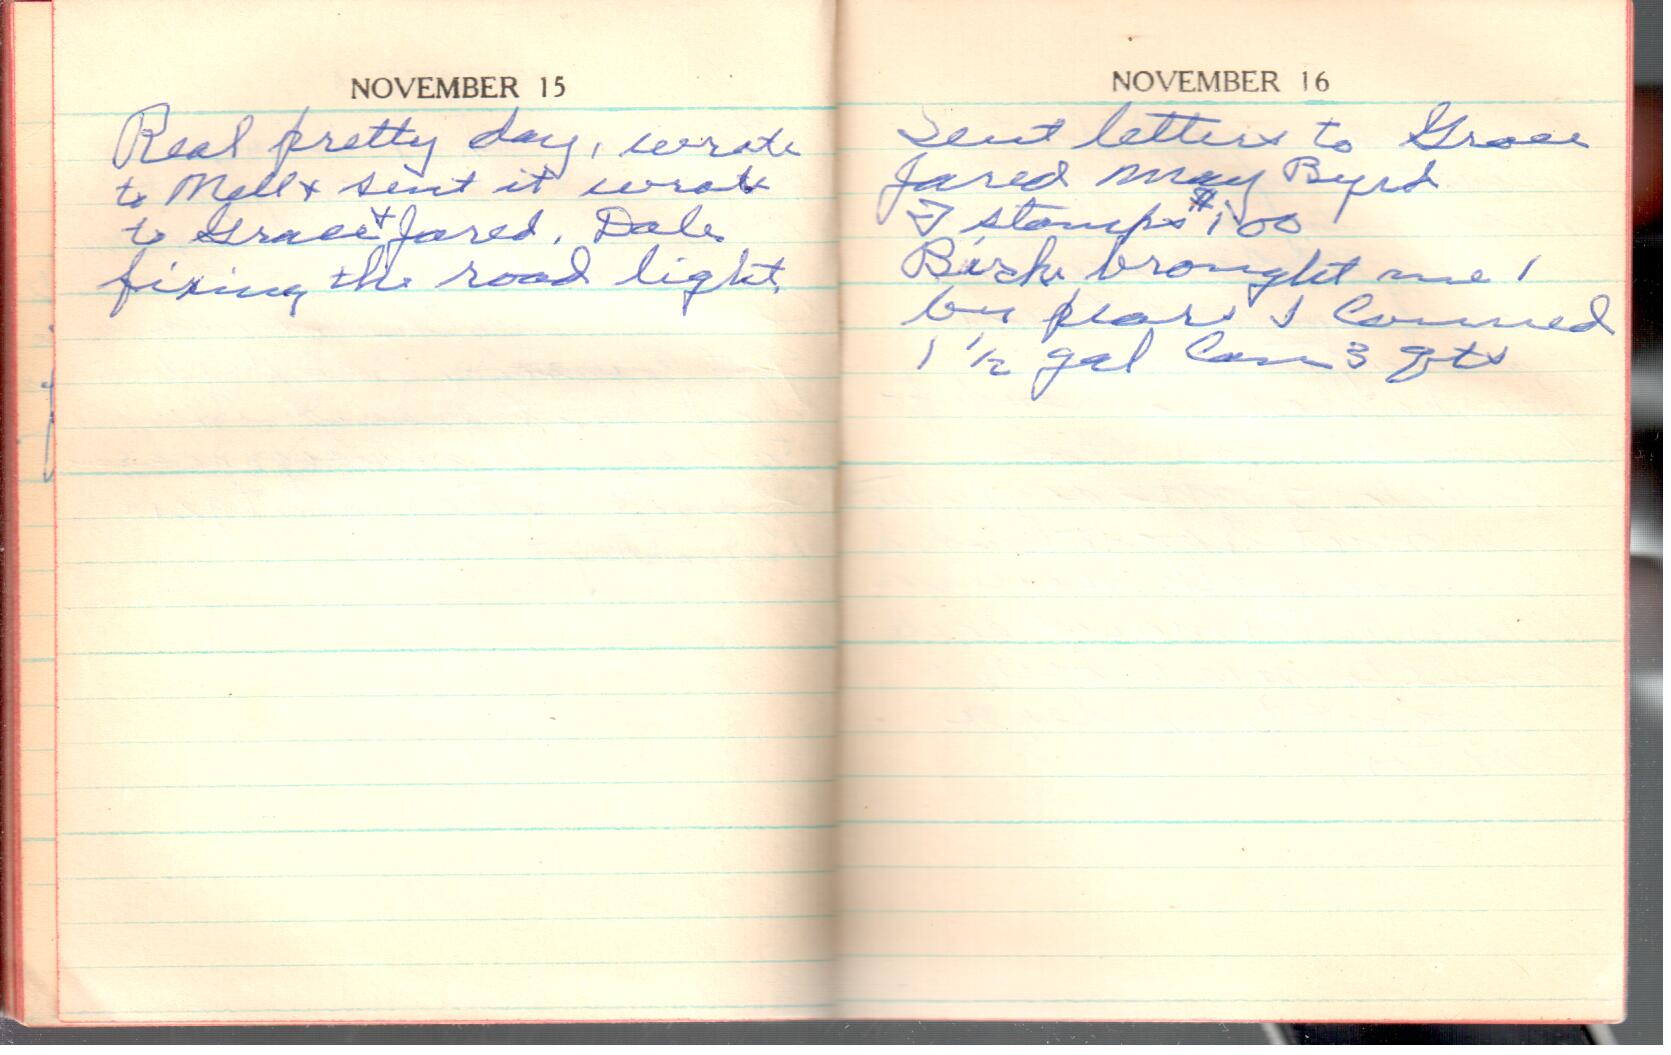 NOVEMBER 15
Real pretty day, wrote
to Mell & sent it wrote
to Grace & Jared. Dale
fixing the road light.
NOVEMBER 16
Sent letters to Grace
Jared May Byrd
stamps $1.00
brought me 1
bu pears I Conned
1 1/2 gal Can 3 qts